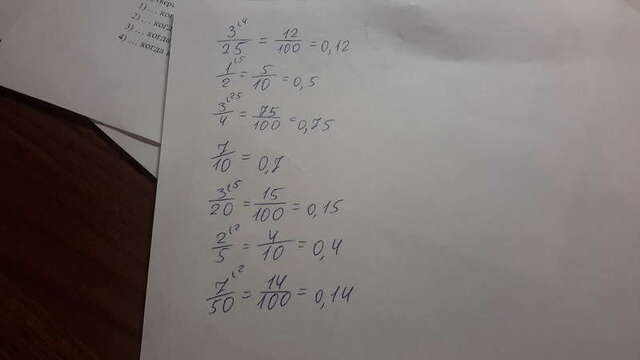 1) ... ког
2) ... когда
3) ... когда
4) ... когда
3^4/25 = 12/100 = 0,12
1^5/2 = 5/10 = 0,5
3^25/4 = 75/100 = 0,75
7/10 = 0,7
3^5/20 = 15/100 = 0,15
2^2/5 = 4/10 = 0,4
7^2/50 = 14/100 = 0,14